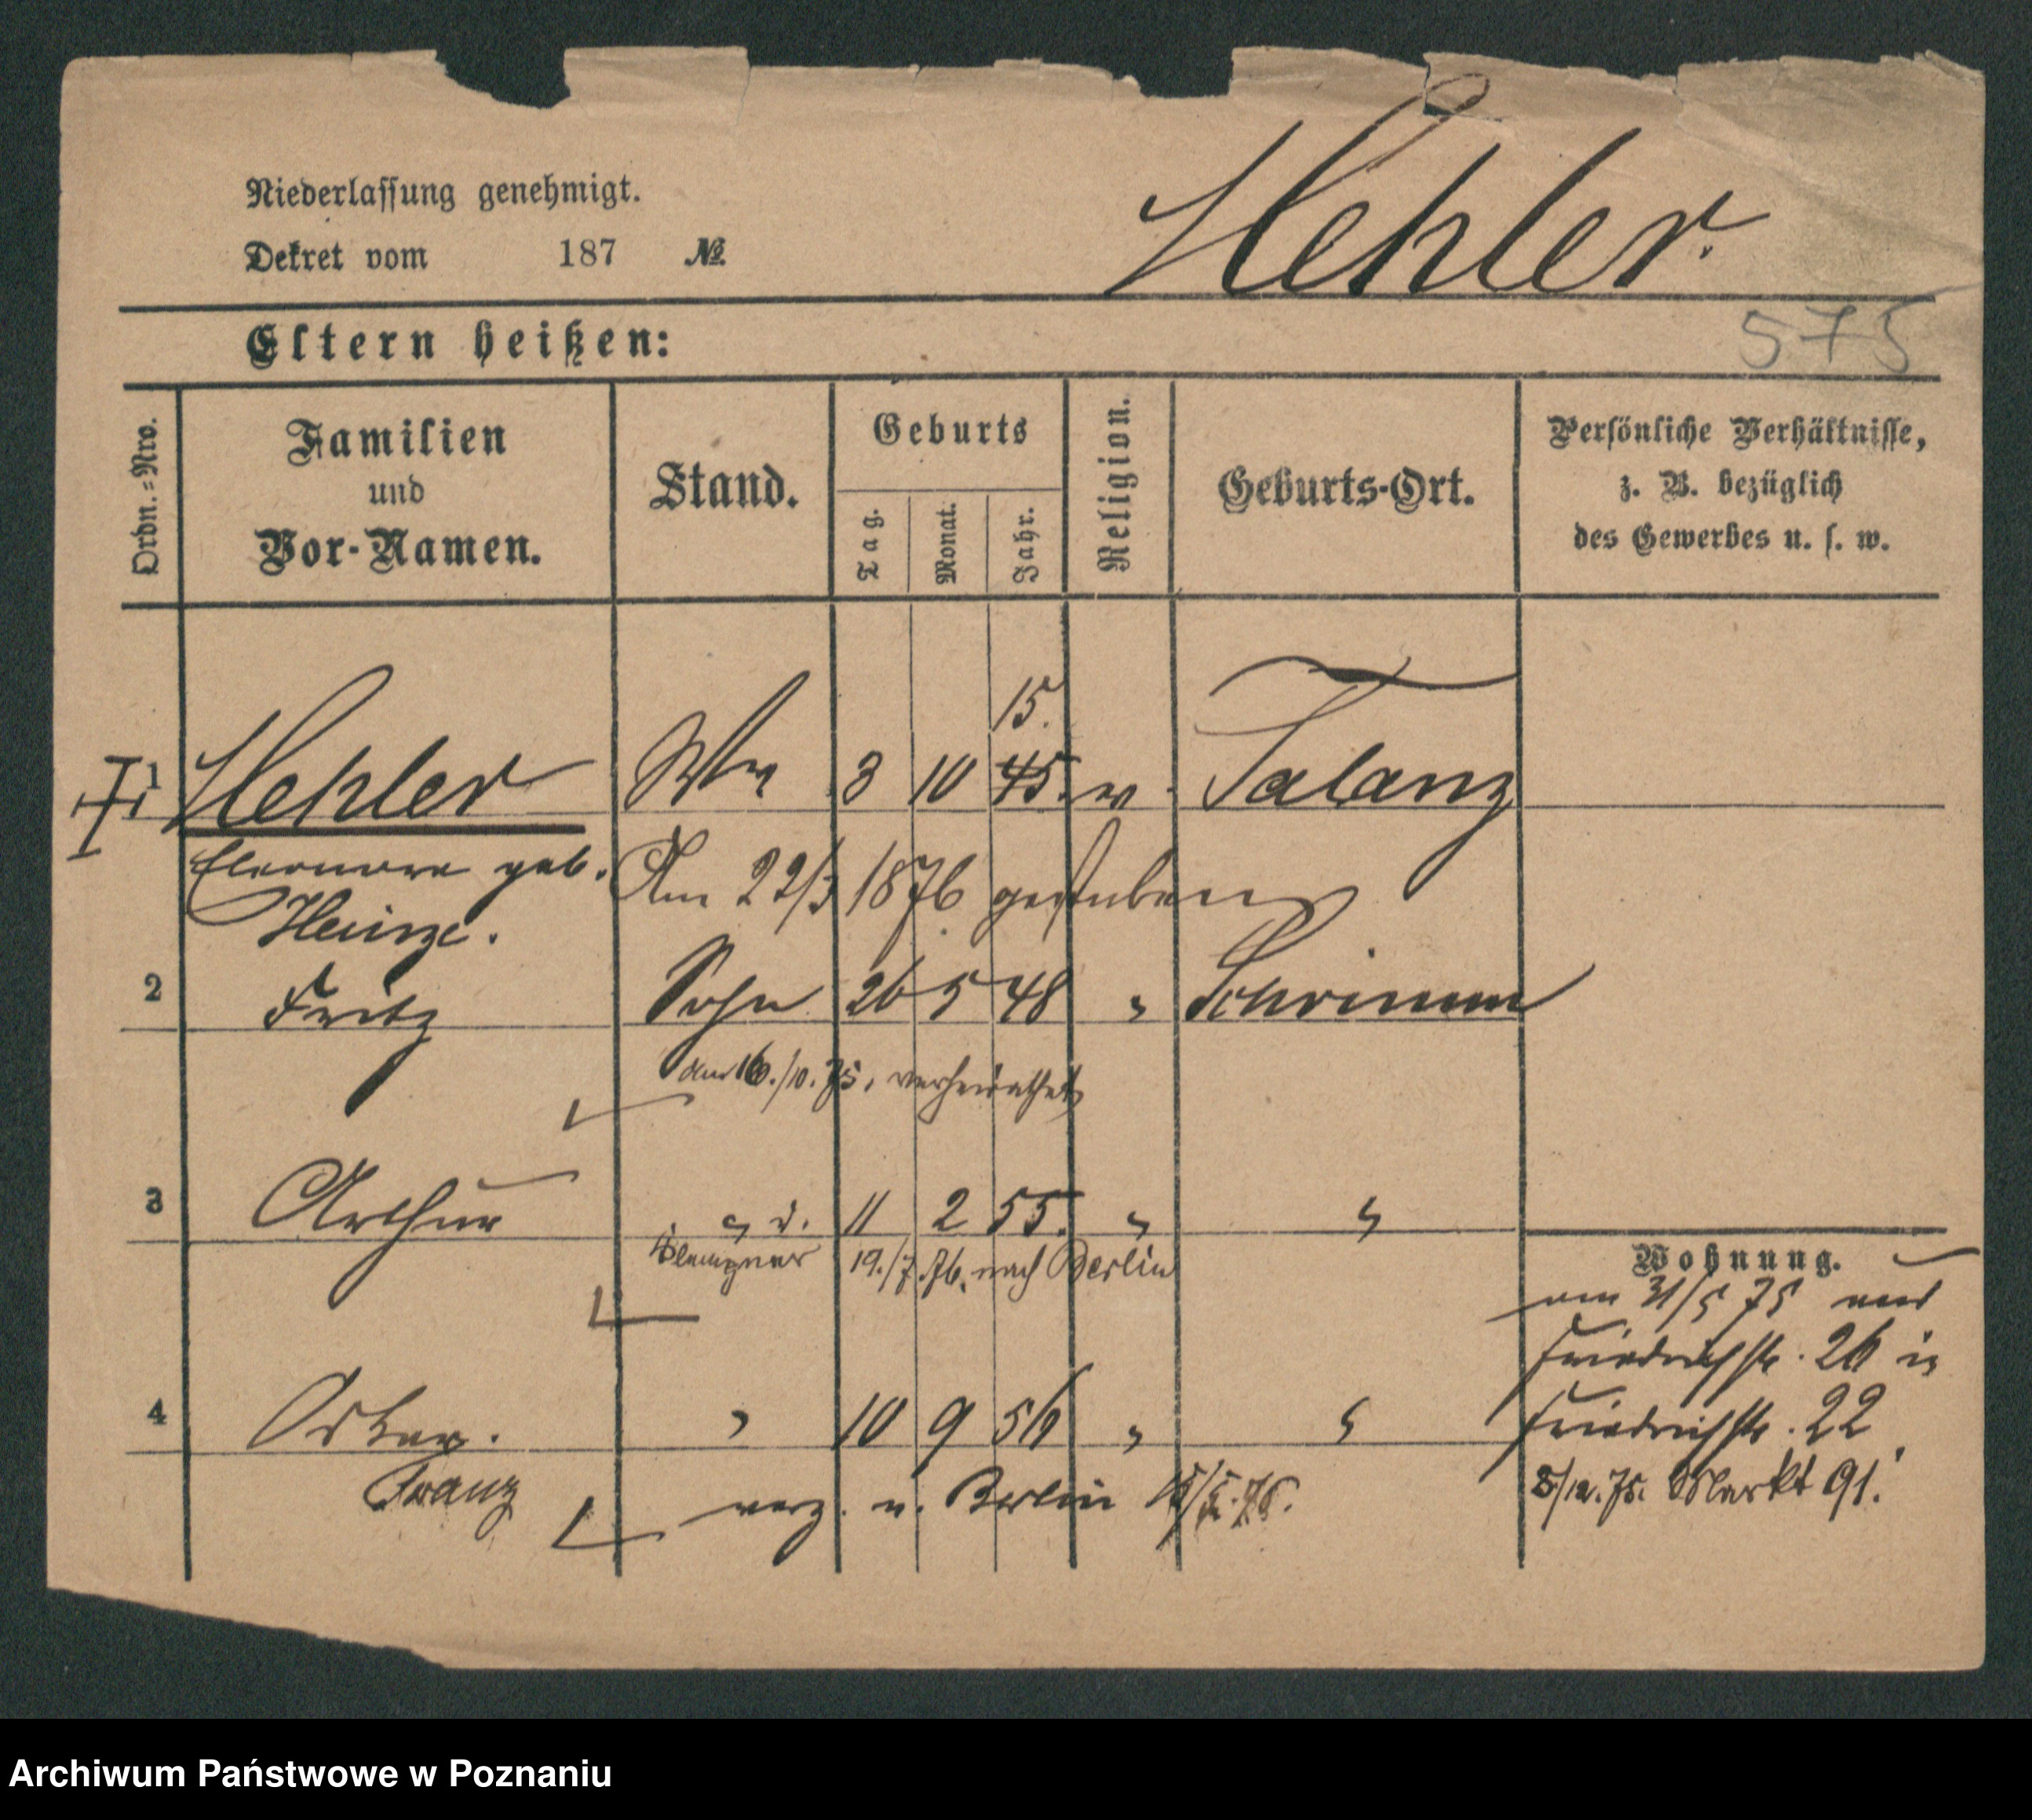 Niederlassung genehmigt.
Dekret vom 187 №
Hehler.
575
Eltern heißen:
Ordn.-Nro.
Familien
und
Vor-Namen.
Stand.
Geburts
Tag.
Monat.
Jahr.
Religion.
Geburts-Ort.
Persönliche Verhältnisse,
z. B. bezüglich
des Gewerbes u. s. w.
15.
1 Hehler Wwe 3 10 45. Talanz
Eleonore geb. Am 22/3 1876 gestorben
Heinze.
2 Fritz Sohn 26 5 48 " Schrimm
am 16./10. 75. verheirathet
3 Arthur " d. 11 2 55. " "
Klempner 19./7. 76. nach Berlin
Wohnung.
am 31/5 75 aus
Friedrichstr. 26 in
4 Oskar. " 10 9 56 " "
Friedrichstr. 22
Franz verz. n. Berlin
8/12. 75. Markt 91.
Archiwum Państwowe w Poznaniu